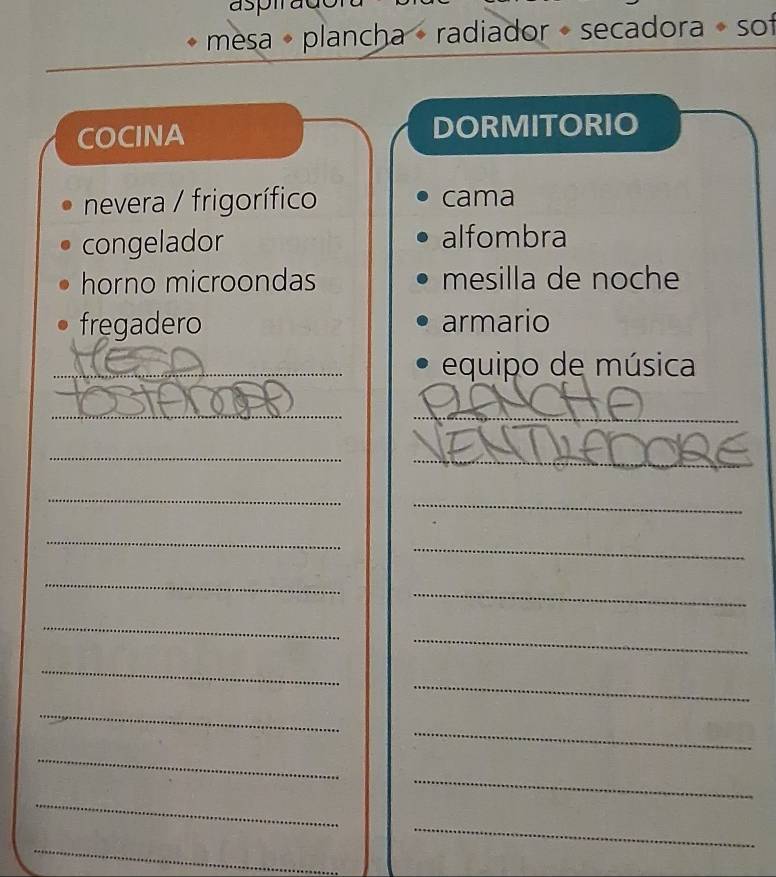 mesa • plancha • radiador • secadora •
COCINA
nevera / frigorífico
congelador
horno microondas
fregadero
TOSTADORA
DORMITORIO
cama
alfombra
mesilla de noche
armario
equipo de música
PLANCHA
VENTILADORE